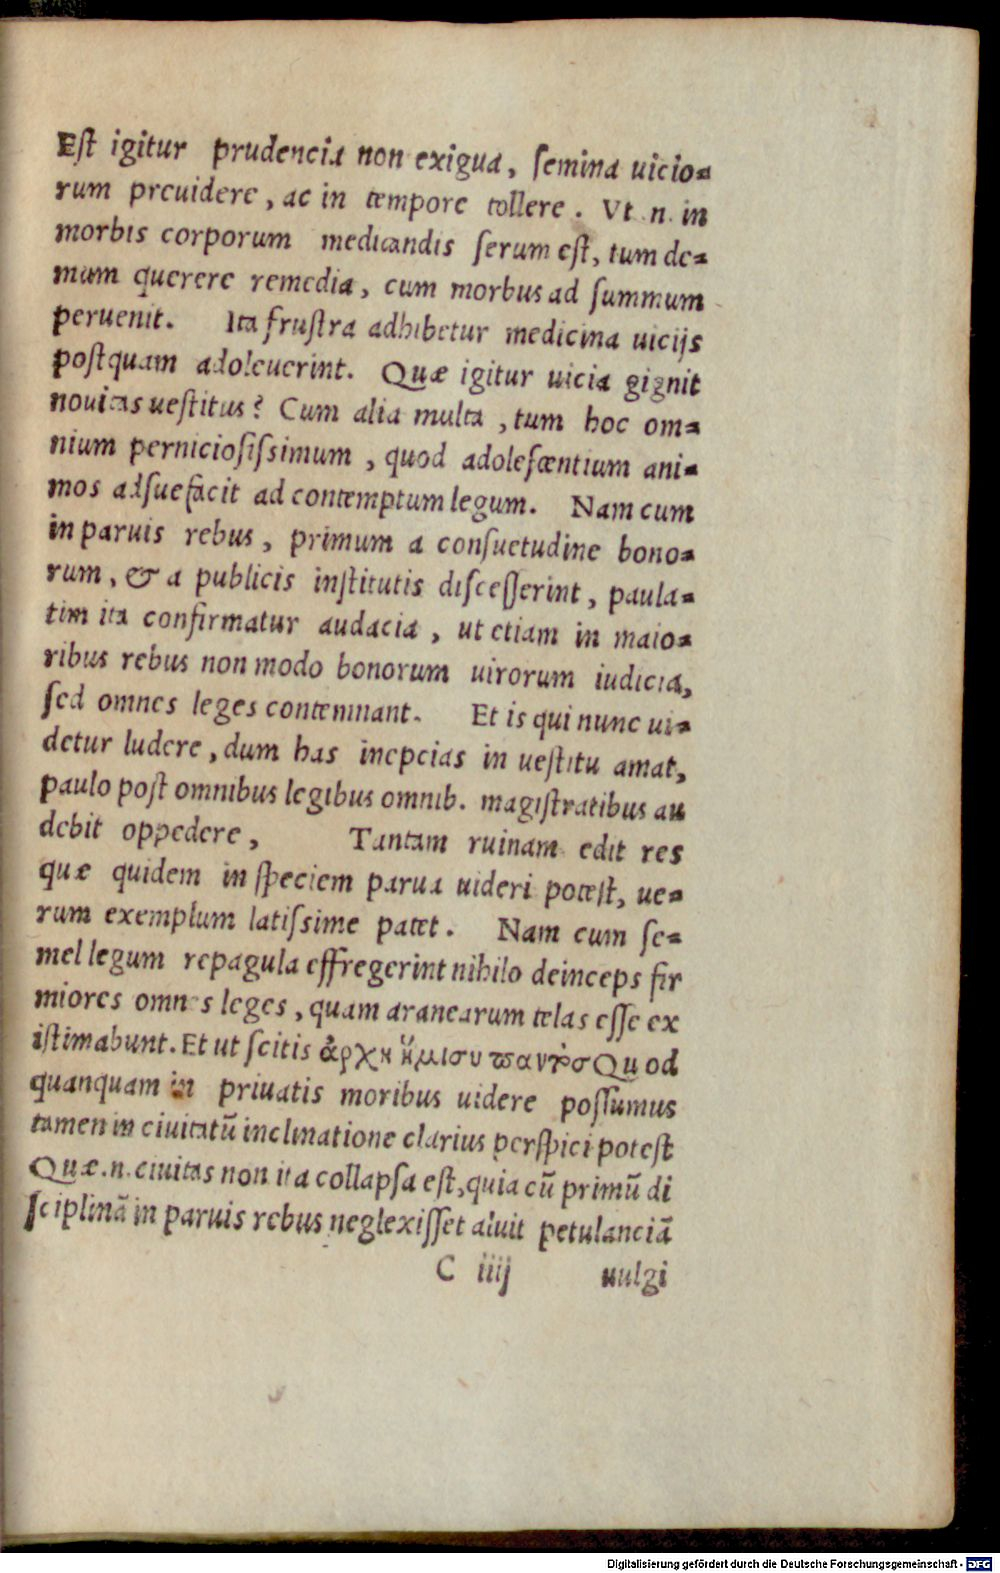 Eſt igitur prudencia non exigua, ſemina uicio⸗
rum preuidere, ac in tempore tollere. Vt .n. in
morbis corporum medicandis ſerum eſt, tum de⸗
mum querere remedia, cum morbus ad ſummum
peruenit. Ita fruſtra adhibetur medicina uicijs
poſtquam adoleuerint. Quæ igitur uicia gignit
nouitas ueſtitus? Cum alia multa, tum hoc om⸗
nium pernicioſiſsimum, quod adoleſcentium ani⸗
mos adſuefacit ad contemptum legum. Nam cum
in paruis rebus, primum a conſuetudine bono⸗
rum, & a publicis inſtitutis diſceſſerint, paula⸗
tim ita confirmatur audacia, ut etiam in maio⸗
ribus rebus non modo bonorum uirorum iudicia,
ſed omnes leges contemnant. Et is qui nunc ui⸗
detur ludere, dum has inepcias in ueſtitu amat,
paulo poſt omnibus legibus omnib. magiſtratibus au
debit oppedere, Tantam ruinam edit res
quæ quidem in ſpeciem parua uideri poteſt, ue⸗
rum exemplum latiſsime patet. Nam cum ſe⸗
mel legum repagula effregerint nihilo deinceps fir
miores omnes leges, quam aranearum telas eſſe ex
iſtimabunt. Et ut ſcitis ἀρχὴ ἥμισυ παντὸσ Quod
quanquam in priuatis moribus uidere poſſumus
tamen in ciuitatũ inclinatione clarius perſpici poteſt
Quæ.n.ciuitas non ita collapſa eſt, quia cũ primũ di
ſciplinã in paruis rebus neglexiſſet aluit petulanciã
C iiij uulgi
Digitalisierung gefördert durch die Deutsche Forschungsgemeinschaft - DFG